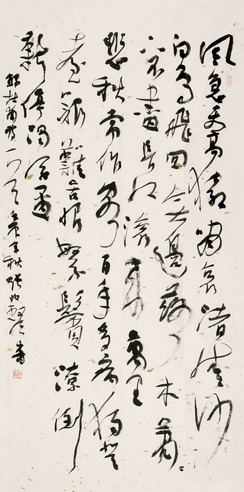 風急天高猿嘯哀渚清沙
白鳥飛回無邊落木蕭
々下不盡長江滚々來萬里
悲秋常作客百年多病獨登
臺艱難苦恨繁霜鬢潦倒
新停濁酒杯
杜甫 秋 書